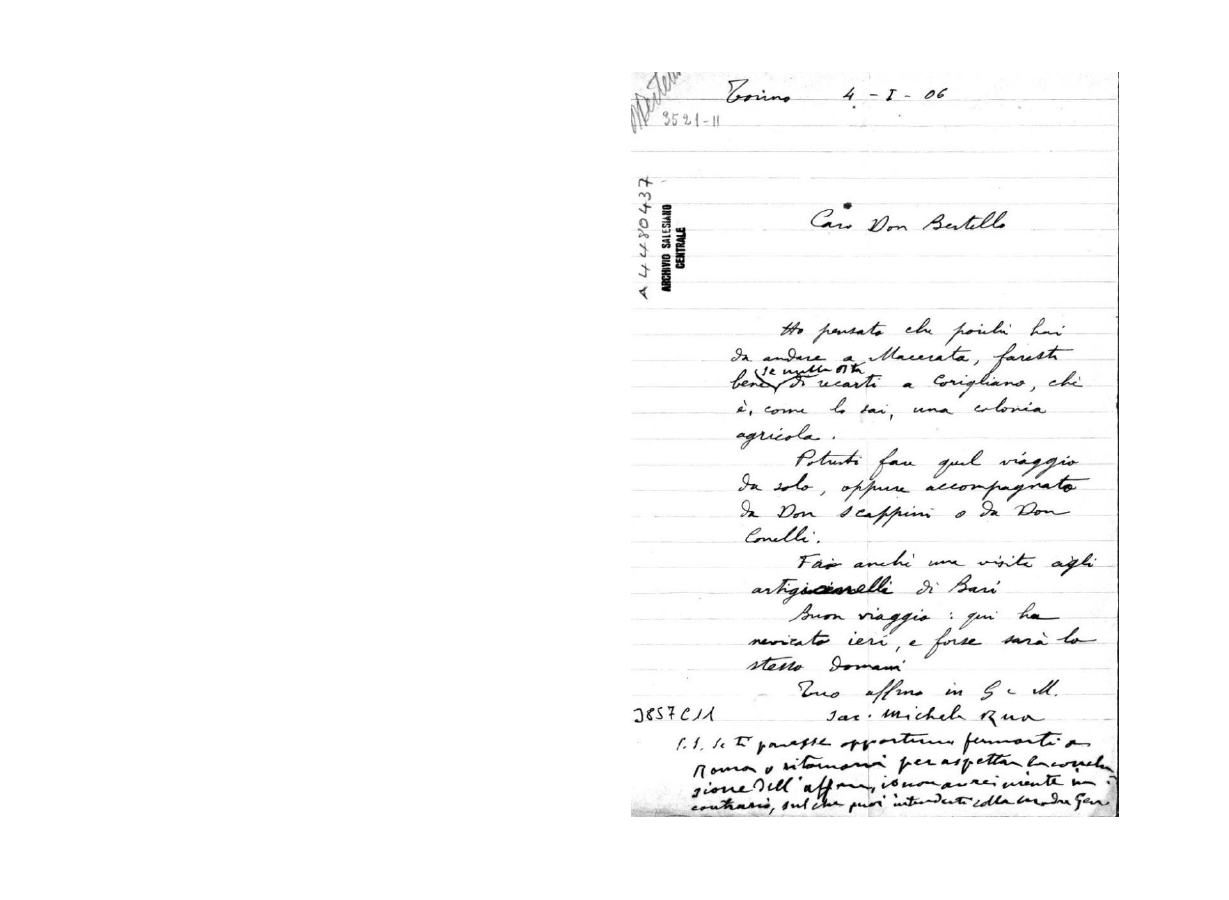 Bertello
3521-II
Torino 4 - I - 06
A 4480437
ARCHIVIO SALESIANO
CENTRALE
Caro Don Bertello
Ho pensato che poichè hai
da andare a Macerata, faresti
se nulla osta
bene di recarti a Corigliano, chè
è, come lo sai, una colonia
agricola.
Potresti fare quel viaggio
da solo, oppure accompagnato
da Don Scappini o da Don
Conelli.
Fai anche una visita agli
artigianelli di Bari
Buon viaggio : qui ha
nevicato ieri, e forse sarà lo
stesso domani
Tuo affmo in G e M.
Sac. Michele Rua
3857C11
P.S. Se ti paresse opportuno fermarti a
Roma o ritornarvi per aspettar la conclu
sione dell' affare, io non avrei niente in
contrario, sul che puoi intenderti colla Madre Gen